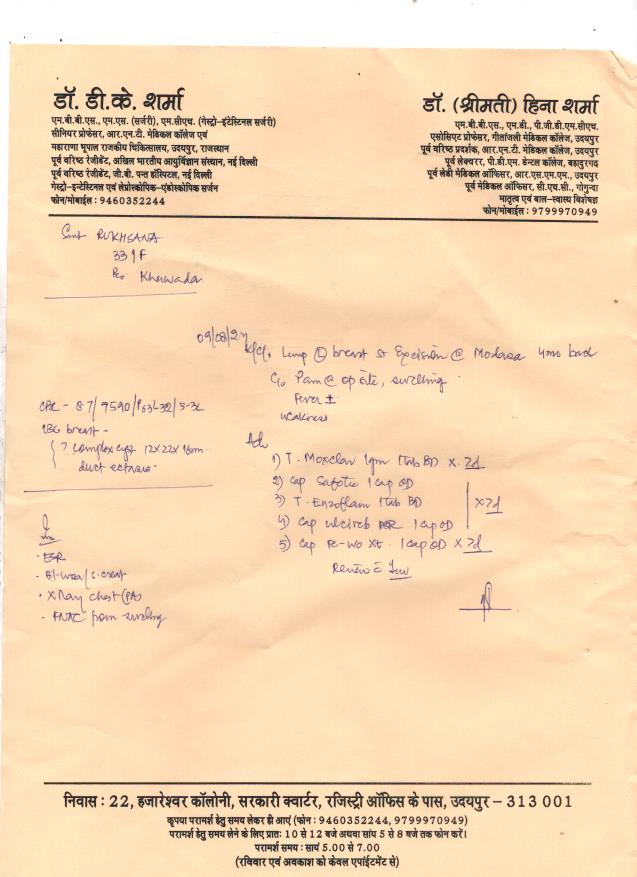 डॉ. डी.के. शर्मा
एम.बी.बी.एस., एम.एस. (सर्जरी), एम.सीएच. (गेस्ट्रो-इंटेस्टिनल सर्जरी)
सीनियर प्रोफेसर, आर.एन.टी. मेडिकल कॉलेज एवं
महाराणा भूपाल राजकीय चिकित्सालय, उदयपुर, राजस्थान
पूर्व वरिष्ठ रेजीडेंट, अखिल भारतीय आयुर्विज्ञान संस्थान, नई दिल्ली
पूर्व वरिष्ठ रेजीडेंट, जी.बी. पन्त हॉस्पिटल, नई दिल्ली
गेस्ट्रो-इन्टेस्टिनल एवं लेप्रोस्कोपिक-एंडोस्कोपिक सर्जन
फोन/मोबाईल : 9460352244
डॉ. (श्रीमती) हिना शर्मा
एम.बी.बी.एस., एम.डी., पी.जी.डी.एम.सीएच.
एसोसिएट प्रोफेसर, गीतांजली मेडिकल कॉलेज, उदयपुर
पूर्व वरिष्ठ प्रदर्शक, आर.एन.टी. मेडिकल कॉलेज, उदयपुर
पूर्व लेक्चरर, पी.डी.एम. डेन्टल कॉलेज, बहादुरगढ
पूर्व लेडी मेडिकल ऑफिसर, आर.एस.एम.एम., उदयपुर
पूर्व मेडिकल ऑफिसर, सी.एच.सी., गोगुन्दा
मातृत्व एवं बाल-स्वास्थ्य विशेषज्ञ
फोन/मोबाईल : 9799970949
Smt RUKHSANA
33/F
R/o Kherwada
09/08/2
K/C/o Lump breast Excision @ Modasa 4mo back
C/o Pain @ op site, swelling
Fever ±
weakness
CBC - 8.7/9590/
USG breast -
? Complex cyst 12x22x16mm
duct ectasia
Adv
1) T. Moxclav 1gm 1tab BD x 7d
2) Cap 1 cap OD
3) T. Enzoflam 1tab BD
4) Cap 1 cap OD
x 7d
5) Cap 1 cap OD x 7d
Review c Inv
Inv
· ESR
· Bl. urea/S. creat
· X Ray Chest (PA)
· FNAC from swelling
निवास : 22, हजारेश्वर कॉलोनी, सरकारी क्वार्टर, रजिस्ट्री ऑफिस के पास, उदयपुर – 313 001
कृपया परामर्श हेतु समय लेकर ही आएं (फोन : 9460352244, 9799970949)
परामर्श हेतु समय लेने के लिए प्रातः 10 से 12 बजे अथवा सांय 5 से 8 बजे तक फोन करें।
परामर्श समय : सायं 5.00 से 7.00
(रविवार एवं अवकाश को केवल एपाईंटमेंट से)